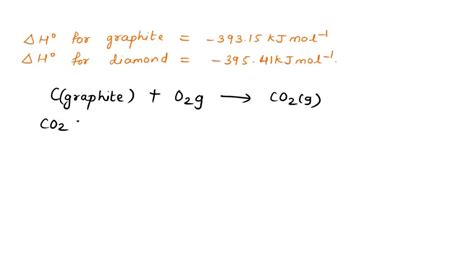 ΔH° for graphite = -393.15 KJ mol⁻¹
ΔH° for diamond = -395.41 KJ mol⁻¹.
C(graphite) + O₂g ⟶ CO₂(g)
CO₂